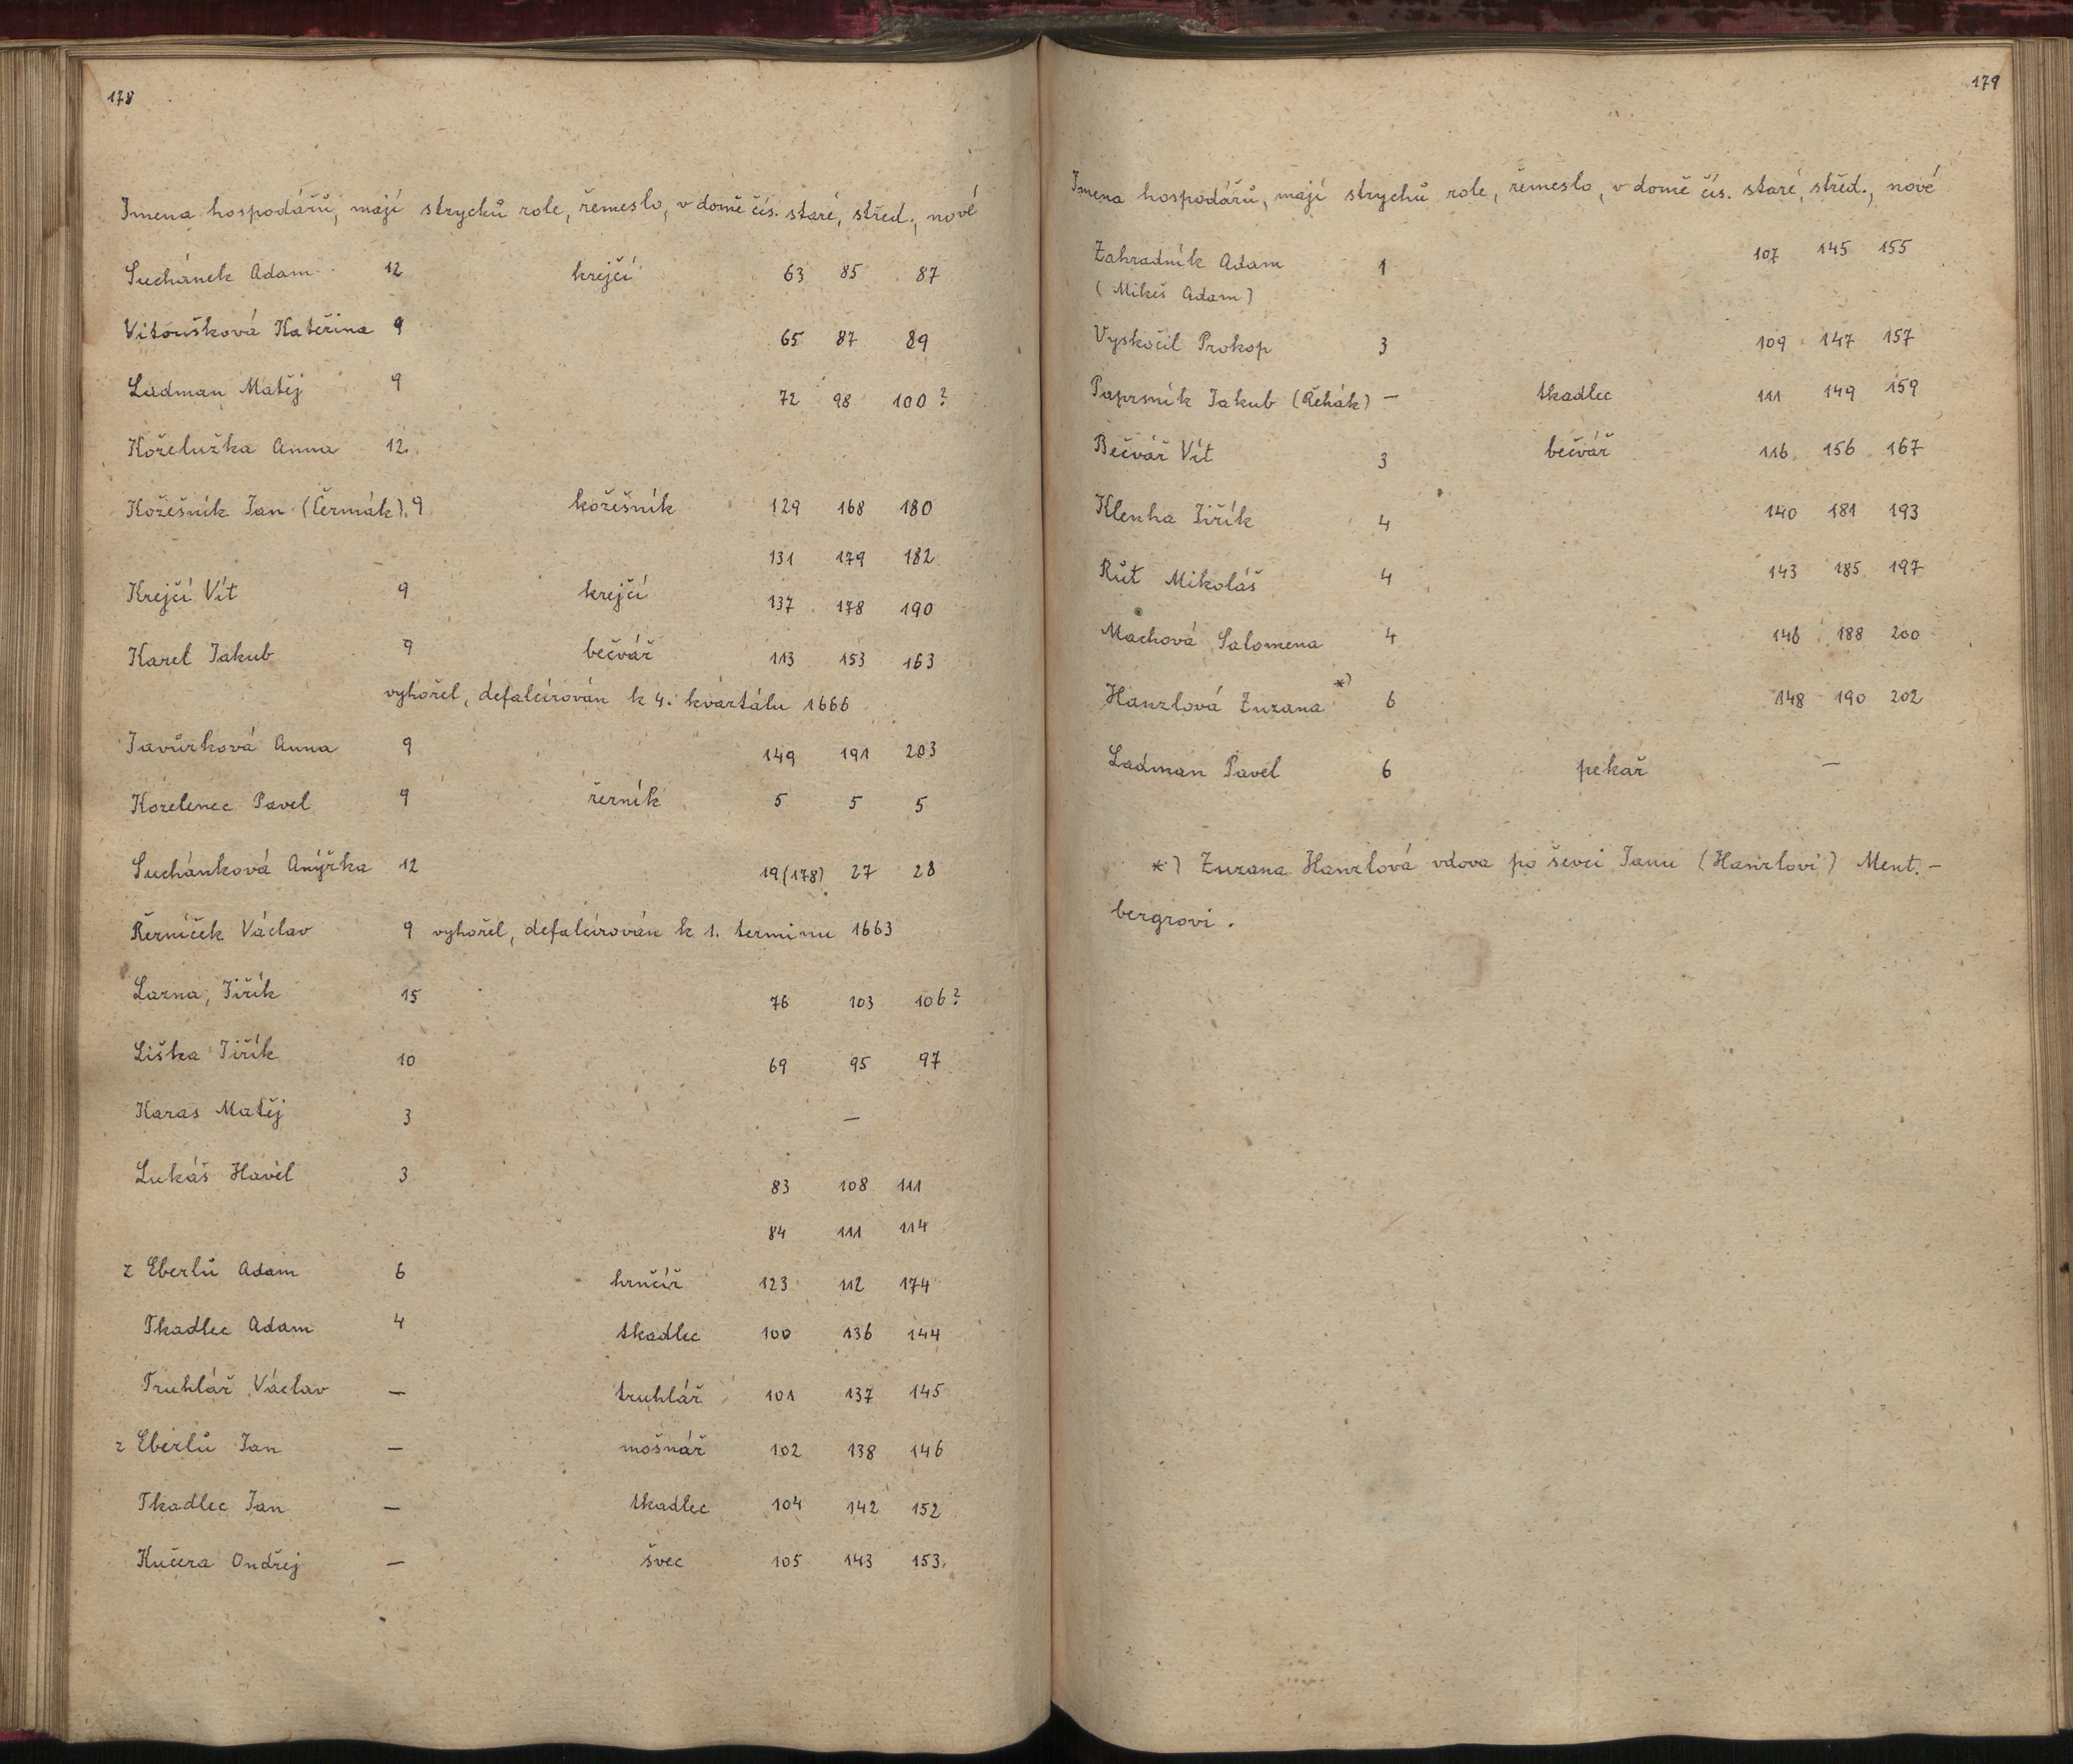 178
Jmena hospodářů, mají strychů role, řemeslo, v domě čís. staré, střed., nové
Suchánek Adam 12 krejčí 63 85 87
Vitoušková Kateřina 9 65 87 89
Ladman Matěj 9 72 98 100?
Koželužka Anna 12.
Kožešník Jan (Čermák). 9 kožešník 129 168 180
131 179 182
Krejčí Vít 9 krejčí 137 178 190
Karel Jakub 9 bečvář 113 153 163
vyhořel, defalcirován k 4. kvartálu 1666
Javůrková Anna 9 149 191 203
Kozelenec Pavel 9 řezník 5 5 5
Suchánková Anýžka 12 19(178) 27 28
Řezníček Václav 9 vyhořel, defalcirován k 1. terminu 1663
Lazna, Jiřík 15 76 103 106?
Liška Jiřík 10 69 95 97
Karas Matěj 3 —
Lukáš Havel 3 83 108 111
84 111 114
z Eberlů Adam 6 hrnčíř 123 112 174
Tkadlec Adam 4 tkadlec 100 136 144
Truhlář Václav — truhlář 101 137 145
z Eberlů Jan — mošnář 102 138 146
Tkadlec Jan — tkadlec 104 142 152
Kučera Ondřej — švec 105 143 153.
179
Jmena hospodářů, mají strychů role, řemeslo, v domě čís. staré, střed., nové
Zahradník Adam 1 107 145 155
(Mikeš Adam)
Vyskočil Prokop 3 109 147 157
Paprsník Jakub (Řehák) — tkadlec 111 149 159
Bečvář Vít 3 bečvář 116 156 167
Klenha Jiřík 4 140 181 193
Růt Mikoláš 4 143 185 197
Machová Salomena 4 146 188 200
Hanzlová Zuzana *) 6 148 190 202
Ladman Pavel 6 pekař —
*) Zuzana Hanzlová vdova po ševci Janu (Hanzlovi) Ment.-
bergrovi.